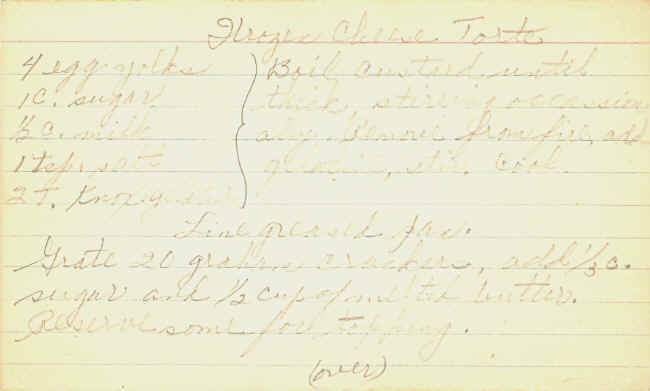 Frozen Cheese Torte
4 egg yolks
1 c. sugar
½ c. milk
1 tsp. salt
2 T. Knox gelatin
Boil custard until
thick, stirring occassion
aly. Remove from fire, add
gelatin, stir. Cool.
Line greased pan.
Grate 20 graham crackers, add ⅓ c.
sugar and ½ cup of melted butter.
Reserve some for topping.
(over)